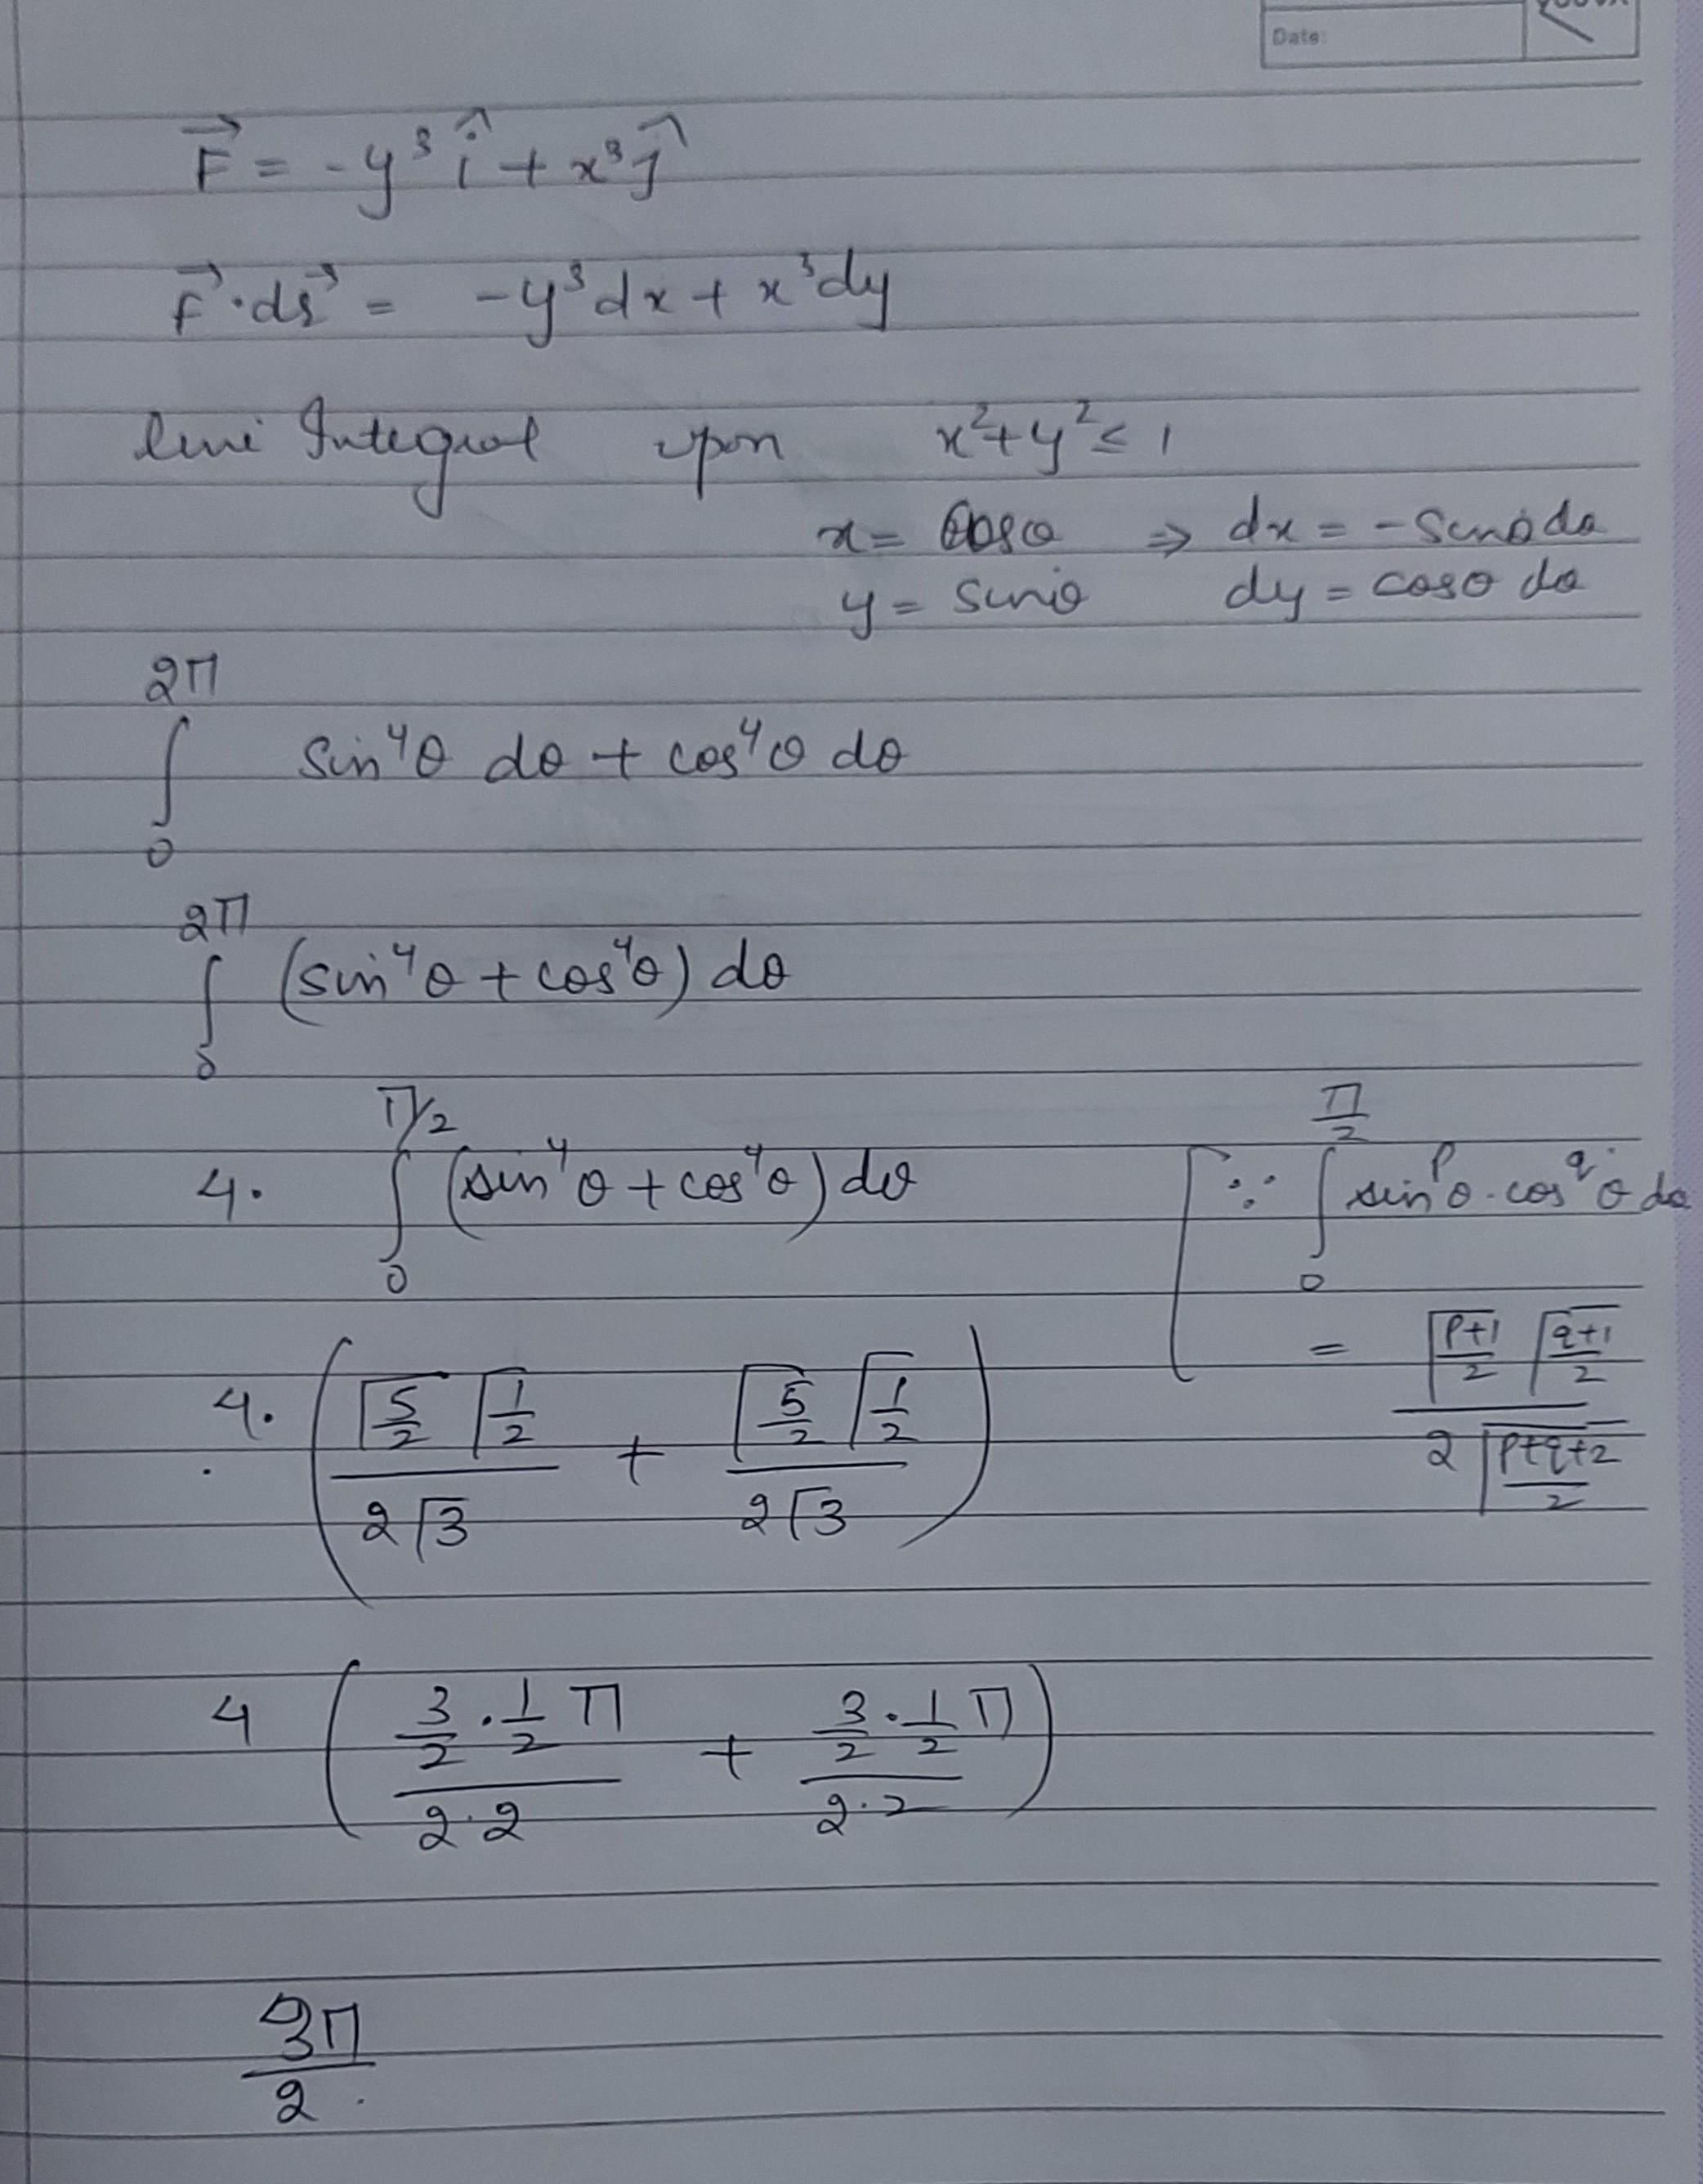 Date:
F⃗ = -y³ î + x³ ĵ
F⃗·dr⃗ = -y³dx + x³dy
line Integral upon x²+y² ≤ 1
x = cosθ ⇒ dx = -sinθdθ
y = sinθ dy = cosθ dθ
∫₀^{2π} sin⁴θ dθ + cos⁴θ dθ
∫₀^{2π} (sin⁴θ + cos⁴θ) dθ
4. ∫₀^{π/2} (sin⁴θ + cos⁴θ) dθ [∵ ∫₀^{π/2} sin^pθ · cos^qθ dθ
= (Γ((p+1)/2) Γ((q+1)/2)) / (2 Γ((p+q+2)/2))
4. ( (Γ(5/2) Γ(1/2)) / (2Γ3) + (Γ(5/2) Γ(1/2)) / (2Γ3) )
4 ( (3/2 · 1/2 π) / (2·2) + (3/2 · 1/2 π) / (2·2) )
3π/2 .